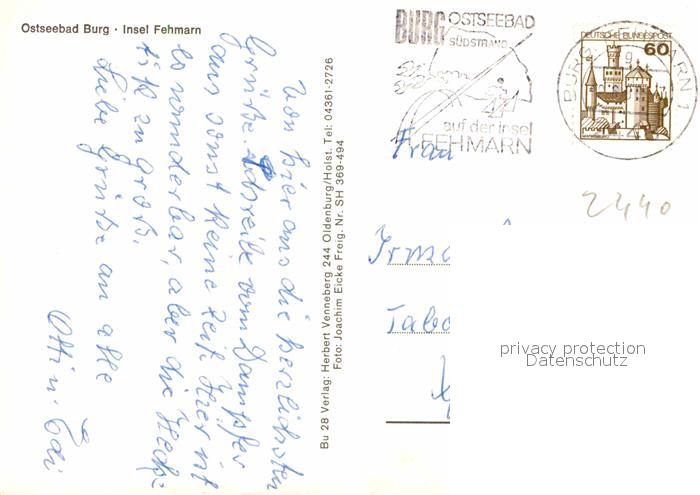 Ostseebad Burg · Insel Fehmarn
Von hier aus die herzlichsten
Grüße. schreibe vom Dampfer
aus sonst keine Zeit. Hier ist
es wunderbar, aber die
ist zu groß.
Liebe Grüße an alle
Otti u. Edi
Bu 28 Verlag: Herbert Venneberg 244 Oldenburg/Holst. Tel: 04361-2726
Foto: Joachim Eicke Freig. Nr. SH 369-494
BURG OSTSEEBAD
SÜDSTRAND
auf der insel
FEHMARN
DEUTSCHE BUNDESPOST
60
Frau
2440
privacy protection
Datenschutz